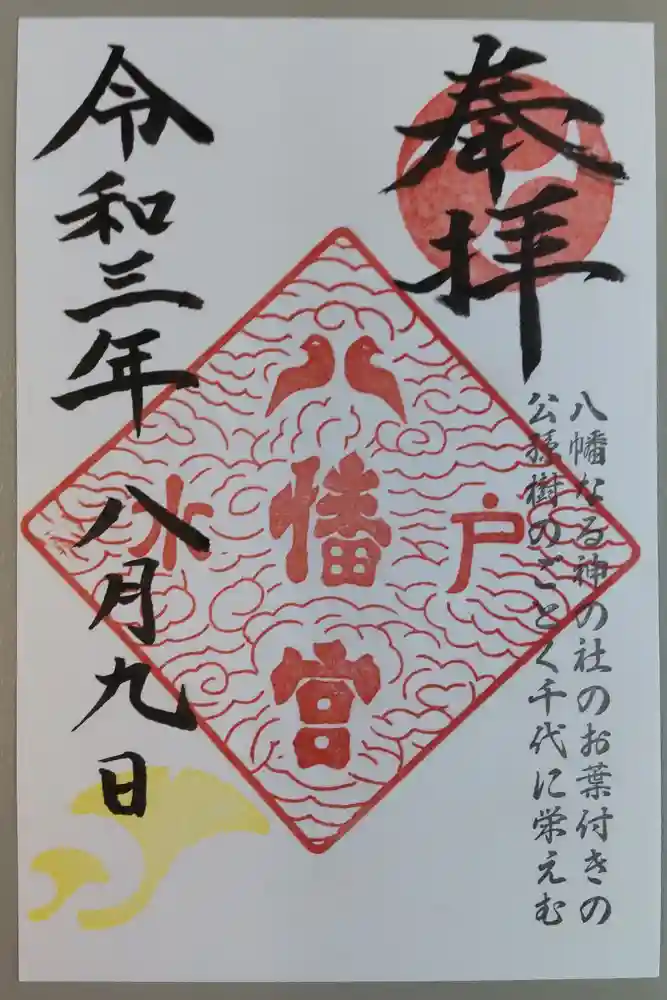 奉拝
八幡なる神の社のお葉付きの
公孫樹のごとく千代に栄えむ
水戸
八幡宮
令和三年八月九日